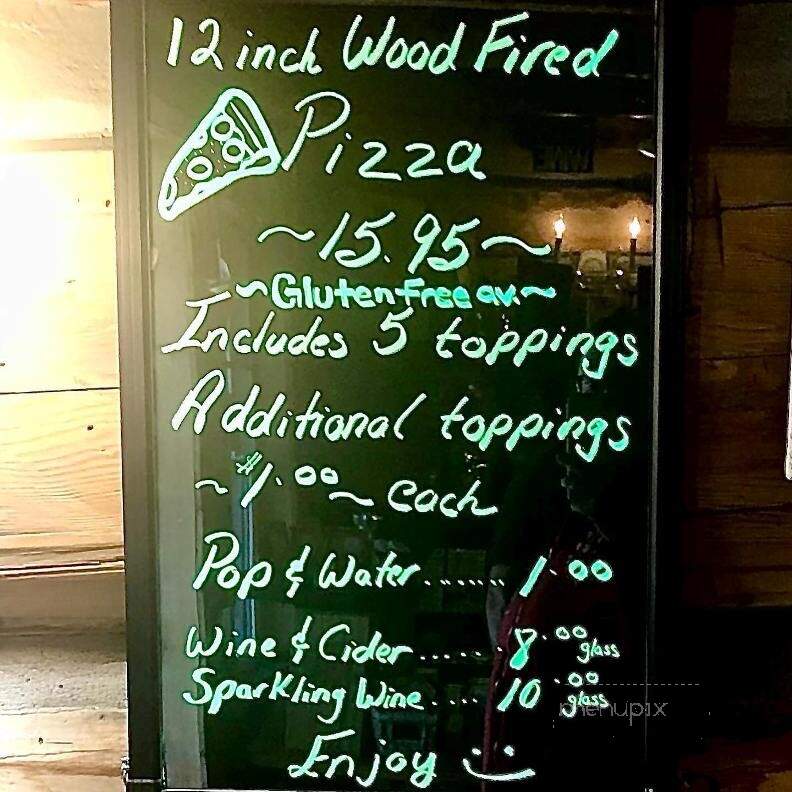 12 inch Wood Fired
Pizza
~15.95~
~Gluten Free av.~
Includes 5 toppings
Additional toppings
~$1.00~ each
Pop & Water........ 1.00
Wine & Cider...... 8.00 glass
Sparkling Wine.... 10.00 glass
menupix
Enjoy